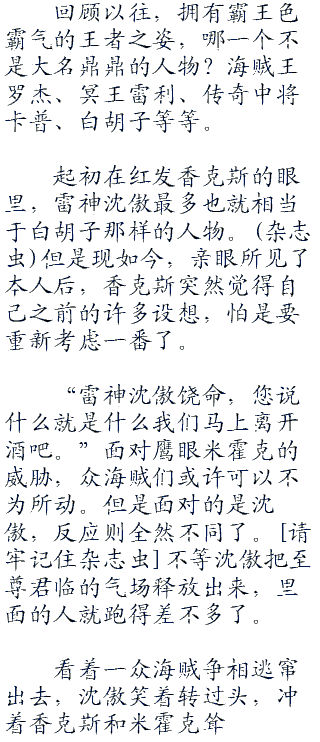 回顾以往，拥有霸王色
霸气的王者之姿，哪一个不
是大名鼎鼎的人物？海贼王
罗杰、冥王雷利、传奇中将
卡普、白胡子等等。
起初在红发香克斯的眼
里，雷神沈傲最多也就相当
于白胡子那样的人物。(杂志
虫)但是现如今，亲眼所见了
本人后，香克斯突然觉得自
己之前的许多设想，怕是要
重新考虑一番了。
“雷神沈傲饶命，您说
什么就是什么我们马上离开
酒吧。”面对鹰眼米霍克的
威胁，众海贼们或许可以不
为所动。但是面对的是沈
傲，反应则全然不同了。[请
牢记住杂志虫]不等沈傲把至
尊君临的气场释放出来，里
面的人就跑得差不多了。
看着一众海贼争相逃窜
出去，沈傲笑着转过头，冲
着香克斯和米霍克耸